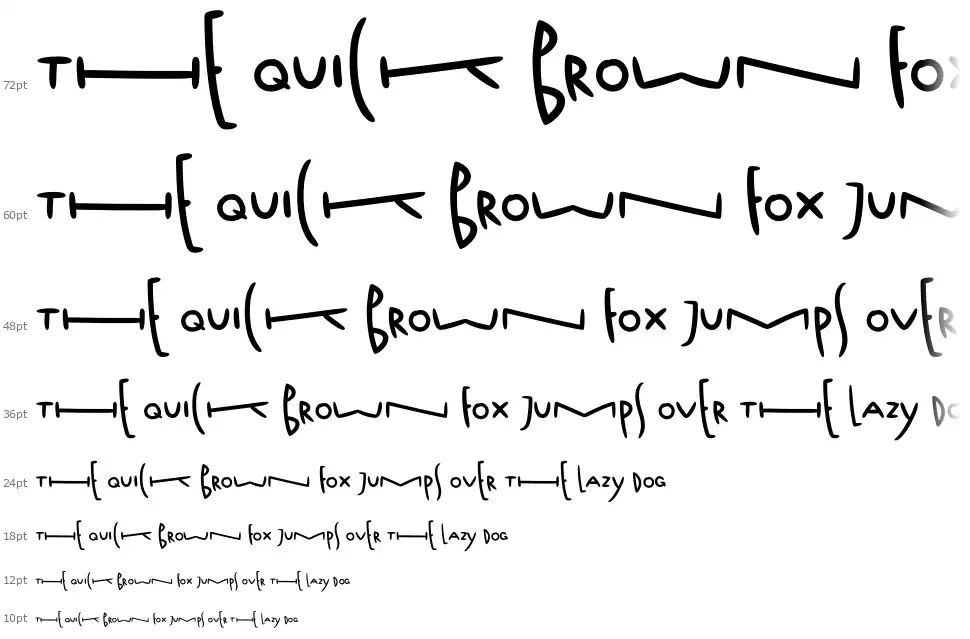 72pt THE QUICK BROWN FOX
60pt THE QUICK BROWN FOX JUM
48pt THE QUICK BROWN FOX JUMPS OVER
36pt THE QUICK BROWN FOX JUMPS OVER THE LAZY DO
24pt THE QUICK BROWN FOX JUMPS OVER THE LAZY DOG
18pt THE QUICK BROWN FOX JUMPS OVER THE LAZY DOG
12pt THE QUICK BROWN FOX JUMPS OVER THE LAZY DOG
10pt THE QUICK BROWN FOX JUMPS OVER THE LAZY DOG